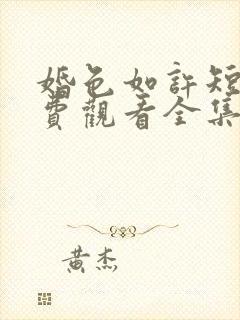 婚色如許短
費觀看全集
黃杰